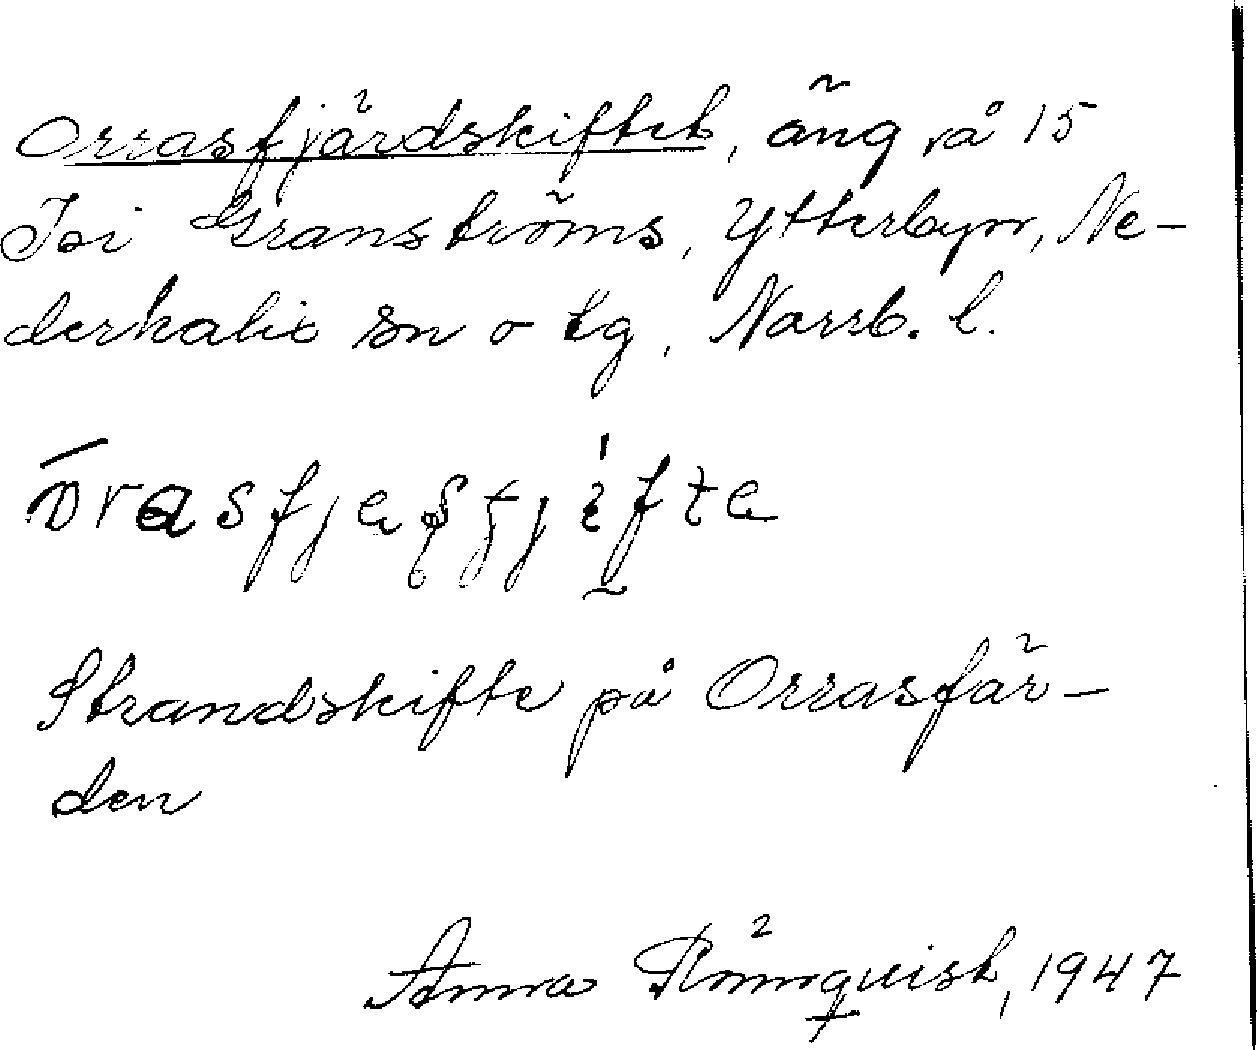 Orrasfjärdskiftet, äng på 15
Ivi Granströms, Ytterbyn, Ne-
derkalix sn o tg, Norrb. l.
Strandskifte på Orrasfjär-
den
Anna Rönnquist, 1947